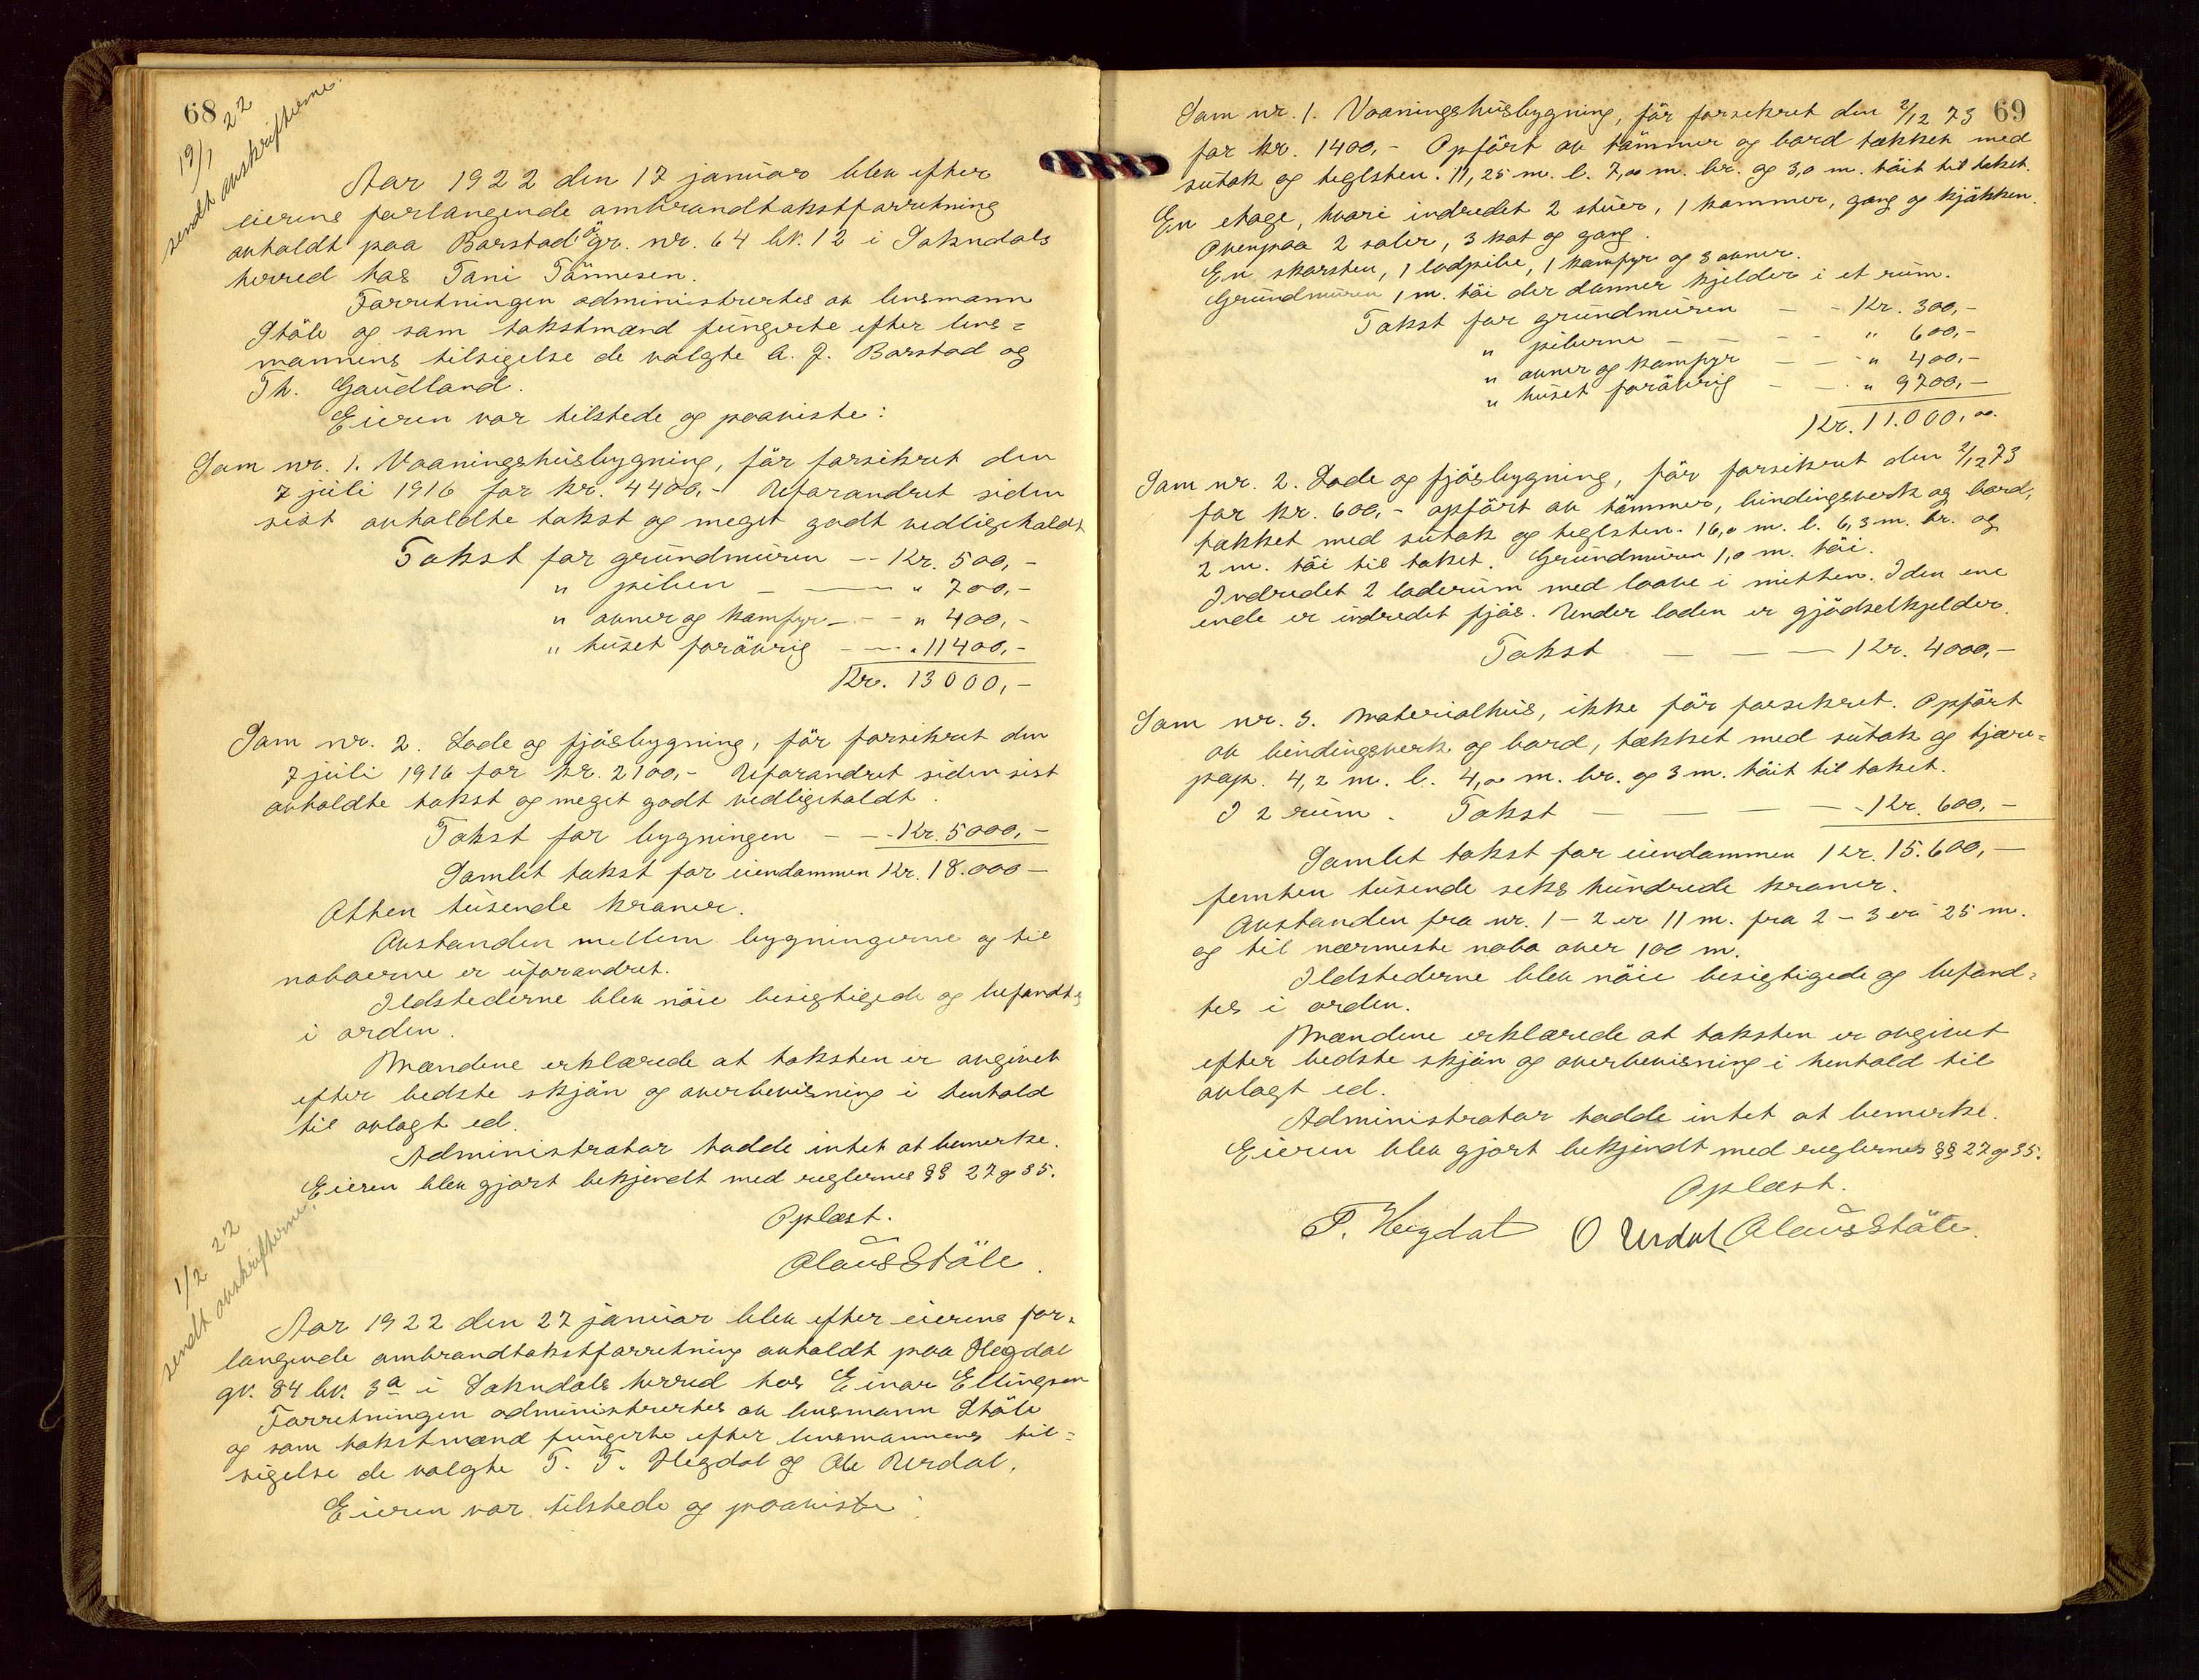 68
19/1 22
sendt avskrifterne.
Aar 1922 den 17 januar blev efter
eierens forlangende ombrandtakstforretning
avholdt paa Barstad gr. nr. 64 br. 12 i Sokndals
herred hos Tani Tönnesen.
Forretningen administrertes av lensmann
Ståle og som takstmænd fungerte efter lens=
mannens tilsigelse de valgte A. J. Barstad og
Th. Gaudland.
Eieren var tilstede og paaviste:
Som nr. 1. Vaaningshusbygning, för forsikret den
7 juli 1916 for kr. 4400,- Uforandret siden
sist avholdte takst og meget godt vedligeholdt
Takst for grundmuren -- Kr. 500,-
" pipen - — " 700,-
" ovner og komfyr - - - " 400,-
" huset forövrig - — " 11400,-
Kr. 13000,-
Som nr. 2. Lade og fjösbygning, för forsikret den
7 juli 1916 for kr. 2100,- Uforandret siden sist
avholdte takst og meget godt vedligeholdt.
Takst for bygningen - - - Kr. 5000,-
Samlet takst for eiendommen Kr. 18.000 -
Atten tusende kroner.
Avstanden mellem bygningerne og til
naboerne er uforandret.
Ildstederne blev nöie besigtigede og befandtes
i orden.
Mændene erklærede at taksten er avgivet
efter bedste skjön og overbevisning i henhold
til avlagt ed.
Administrator hadde intet at bemerke.
Eieren blev gjort bekjendt med reglernes §§ 27 og 35.
Oplæst.
Olaus Ståle.
1/2 22
sendt avskrifterne.
Aar 1922 den 27 januar blev efter eierens for=
langende ombrandtakstforretning avholdt paa Hegdal
gr. 84 br. 3a i Sokndals herred hos Einar Ellingsen
Forretningen administrertes av lensmann Ståle
og som takstmænd fungerte efter lensmannens til=
sigelse de valgte T. T. Hegdal og Ole Urdal.
Eieren var tilstede og paaviste:
69
Som nr. 1. Vaaningshusbygning, för forsikret den 2/12 73
for kr. 1400,- Opfört av tömmer og bord tækket med
sutak og teglsten. 11,25 m. l. 7,00 m. br. og 3,0 m. höit til taket.
En etage, hvori indredet 2 stuer, 1 kammer, gang og kjökken.
Ovenpaa 2 saler, 3 kot og gang.
En skorsten, 1 lodpibe, 1 komfyr og 3 ovner.
Grundmuren 1 m. höi der danner kjelder i et rum.
Takst for grundmuren - - Kr. 300,-
" piberne - - - - " 600,-
" ovner og komfyr - - - " 400,-
" huset forövrig - - - " 9700,-
Kr. 11.000,00.
Som nr. 2. Lade og fjösbygning, för forsikret den 2/12 73
for kr. 600,- opfört av tömmer, bindingsverk og bord,
tækket med sutak og teglsten. 16,0 m. l. 6,3 m. br. og
2 m. höi til taket. Grundmuren 1,0 m. höi.
Indredet 2 laderum med laave i mitten. I den ene
ende er indredet fjös. Under laden er gjödselkjelder.
Takst — — — Kr. 4000,-
Som nr. 3. Materialhus, ikke för forsikret. Opfört
av bindingsverk og bord, tækket med sutak og tjære=
pap. 4,2 m. l. 4,0 m. br. og 3 m. höit til taket.
I 2 rum. Takst — — — Kr. 600,-
Samlet takst for eiendommen Kr. 15.600,-
femten tusende seks hundrede kroner.
Avstanden fra nr. 1 - 2 er 11 m. fra 2 - 3 er 25 m.
og til nærmeste nabo over 100 m.
Ildstederne blev nöie besigtigede og befand=
tes i orden.
Mændene erklærede at taksten er avgivet
efter bedste skjön og overbevisning i henhold til
avlagt ed.
Administrator hadde intet at bemerke.
Eieren blev gjort bekjendt med reglernes §§ 27 og 35.
Oplæst.
T. Hegdal O Urdal Olaus Ståle.